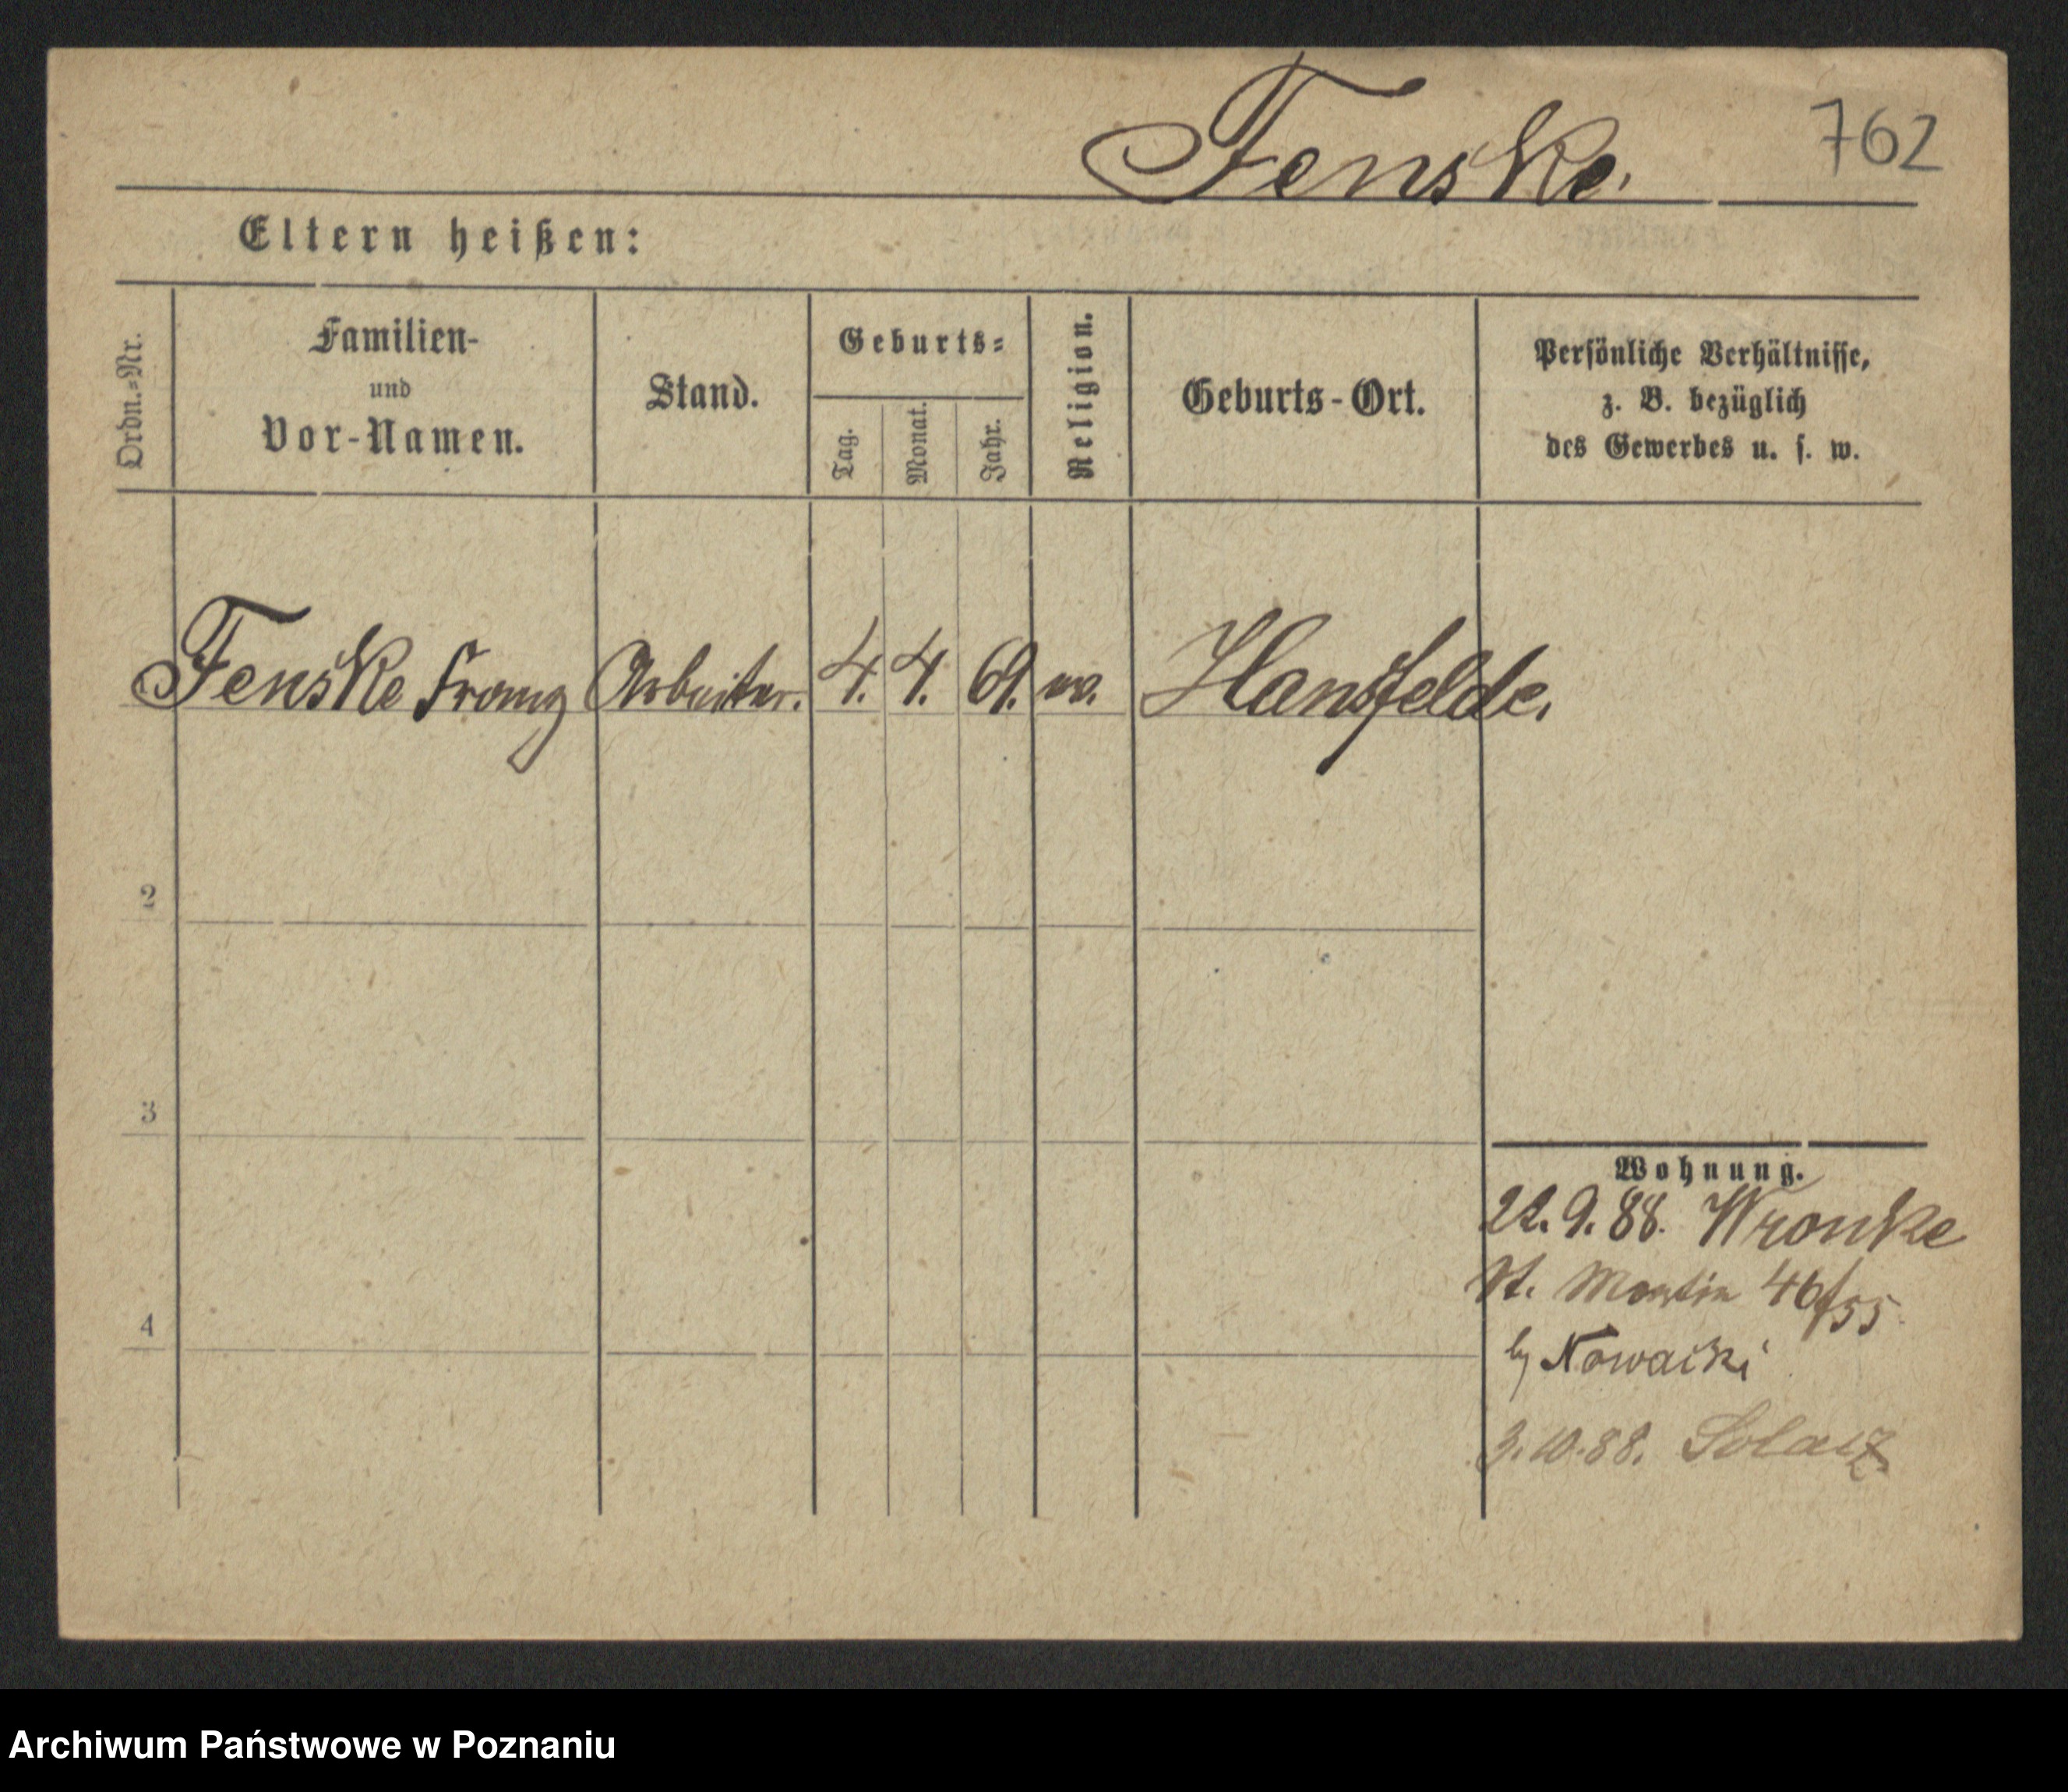 Fenske. 762
Eltern heißen:
Ordn.-Nr.
Familien-
und
Vor-Namen.
Stand.
Geburts-
Tag.
Monat.
Jahr.
Religion.
Geburts-Ort.
Persönliche Verhältnisse,
z. B. bezüglich
des Gewerbes u. s. w.
Fenske Franz Arbeiter. 4. 4. 69. ev. Hansfelde.
2
3
4
Wohnung.
22.9.88. Wronke
St. Martin 46/55
by Nowacki
3.10.88. Solacz
Archiwum Państwowe w Poznaniu